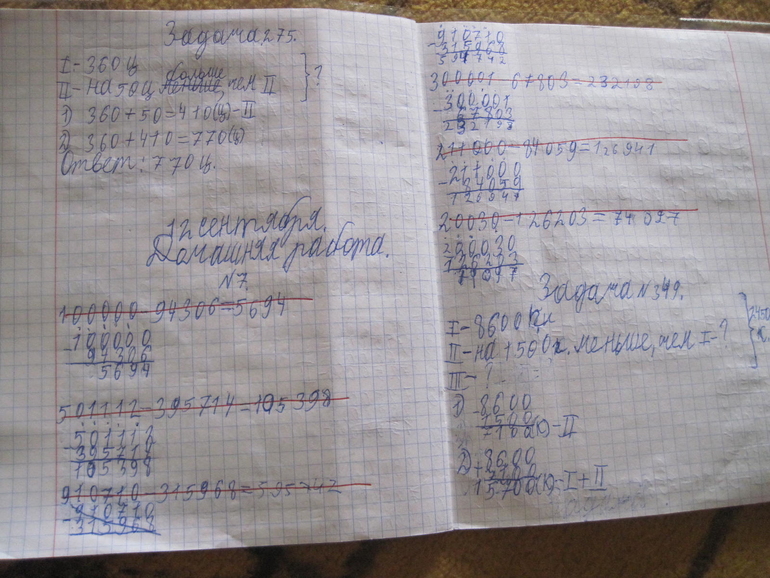 Задача 275.
I - 360 ц
II - на 50 ц больше меньше, чем II } ?
1) 360 + 50 = 410 (ц) - II
2) 360 + 410 = 770 (ц)
Ответ: 770 ц.
12 сентября.
Домашняя работа.
N 7.
100000 - 94306 = 5694
- 100000
94306
5694
501112 - 395714 = 105398
- 501112
395714
105398
910710 - 315968 = 595742
- 910710
315968
910710
- 315968
594742
300001 67803 = 232198
- 300001
67803
232198
211000 - 84059 = 126941
- 211000
84059
126941
20030 - 126203 = 74097
200030
126203
Задача N 349.
I - 8600
II - на 1500 к. меньше, чем I - ?
III - ?
2450
1) - 8600
1500
(к) - II
2) + 8600
15700 (к) - I + II